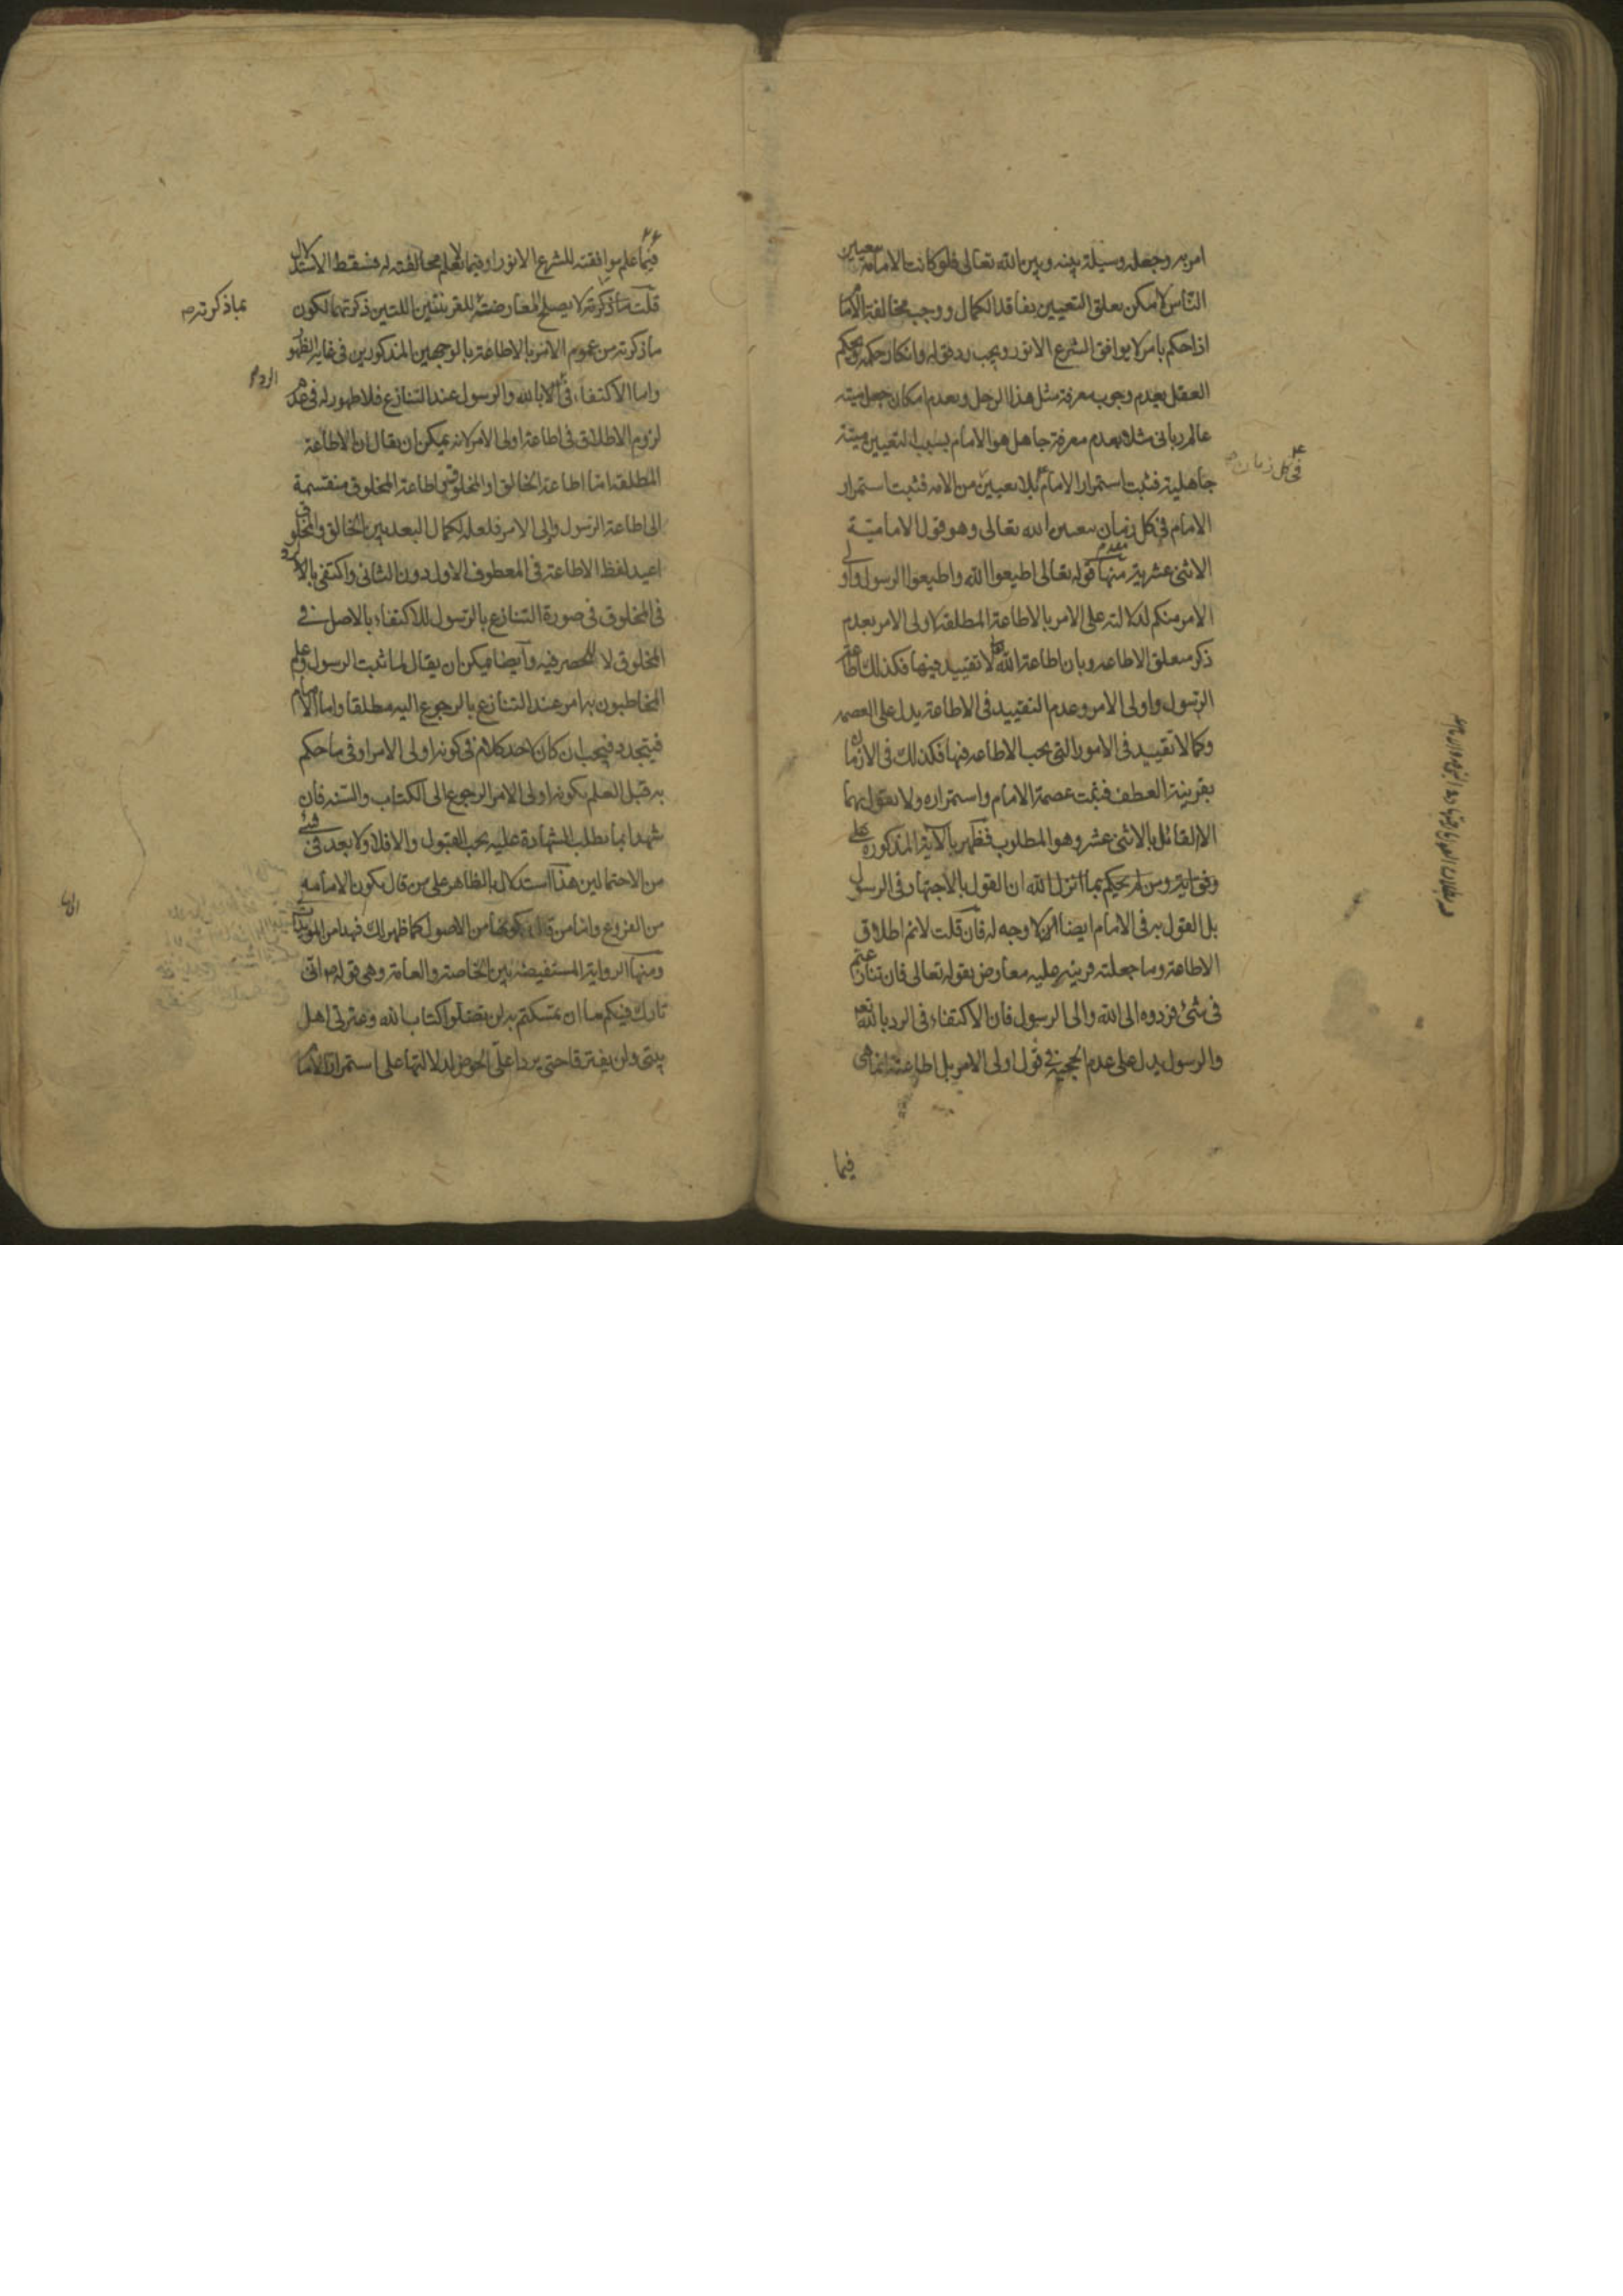 امر به وجعله وسيلة بينه وبين الله تعالى فلو كانت الامامة بتعيين
الناس لامكن تعلق التعيين بفاقد الكمال ووجب مخالفة الامام
اذا حكم بامر لا يوافق الشرع الانور ويجب رد قوله وانكار حكمه ويحكم
العقل بعدم وجوب معرفة مثل هذا الرجل وبعدم امكان جعل ميتة
عالم رباني مثلا بعدم معرفة جاهل هو الامام بسبب التعيين ميتة
جاهلية فثبت استمرار الامام بلا تعيين من الامة فثبت استمرار
في كل زمان
الامام في كل زمان بتعيين الله تعالى وهو قول الامامية
الاثنى عشرية ومنها قوله تعالى اطيعوا الله واطيعوا الرسول واولى
الامر منكم لدلالته على الامر بالاطاعة المطلقة لاولى الامر بعدم
ذكر متعلق الاطاعة وبان اطاعة الله تعالى لا تقييد فيها فكذلك اطاعة
الرسول واولى الامر وعدم التقييد في الاطاعة يدل على العصمة
وكما لا تقييد في الامور التى يجب الاطاعة فيها فكذلك في الازمان
بقرينة العطف فثبت عصمة الامام واستمراره ولا يقول بهما
الا القائل بالاثنى عشر وهو المطلوب فظهر بالآية المذكورة
ومن لم يحكم بما انزل الله ان القول بالاجتهاد في الرسول
بل القول به في الامام ايضا لا وجه له فان قلت لانم اطلاق
الاطاعة وما جعلته قرينة عليه معارض بقوله تعالى فان تنازعتم
في شئ فردوه الى الله والى الرسول فان الاكتفاء في الرد بالله
والرسول يدل على عدم الحجية في قول اولى الامر بل اطاعته انما هى
فيما
فيما علم موافقته للشرع الانور او فيما لا يعلم مخالفته له فسقط الاستدلال
بما ذكرته
قلت ما ذكرته لا يصلح لمعارضة القرينتين اللتين ذكرتهما لكون
ما ذكرته من عموم الامر بالاطاعة بالوجهين المذكورين في غاية الظهور
واما الاكتفاء في الرد بالله والرسول عند التنازع فلا ظهور له في عدم
لزوم الاطلاق في اطاعة اولى الامر لانه يمكن ان يقال ان الاطاعة
المطلقة اما اطاعة الخالق او المخلوق واطاعة المخلوق منقسمة
الى اطاعة الرسول واولى الامر فلعله لكمال البعد بين الخالق والمخلوق
اعيد لفظ الاطاعة في المعطوف الاول دون الثانى واكتفى بالرد
في المخلوق في صورة التنازع بالرسول للاكتفاء بالاصل في
المخلوق لا للحصر فيه وايضا يمكن ان يقال لما ثبت الرسول وعلم
المخاطبون به امر عند التنازع بالرجوع اليه مطلقا واما الامام
فيتجدد فيجب ان كان لاحد كلام في كونه اولى الامر او في ما حكم
به قبل العلم بكونه اولى الامر الرجوع الى الكتاب والسنة فان
شهدا بما تطلب الشهادة عليه يجب القبول والا فلا ولا بعد في شئ
من الاحتمالين هذا استدلال بالظاهر على من قال بكون الامامة
من الفروع واما من قال بكونها من الاصول كما ظهر لك فهذا من المؤيدات
ومنها الرواية المستفيضة بين الخاصة والعامة وهى قوله ص انى
تارك فيكم ما ان تمسكتم به لن تضلوا كتاب الله وعترتى اهل
بيتى ولن يفترقا حتى يردا على الحوض لدلالتها على استمرار الامام